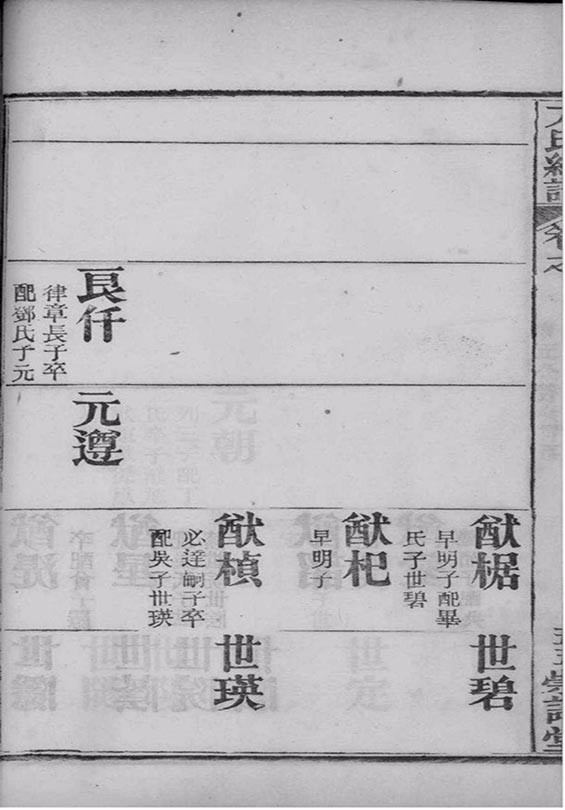 氏總譜
卷之
猷椐
早明子配畢
氏子世碧
世碧
猷杞
早明子
猷楨
必達嗣子卒
配吳子世瑛
世瑛
良仟
律章長子卒
配鄧氏子元
元遵